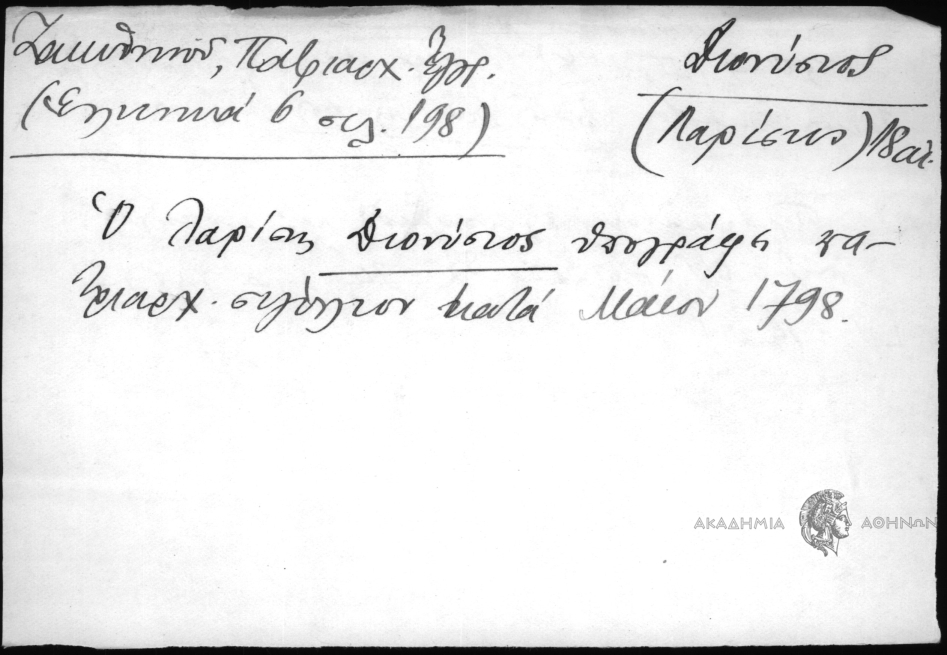 Ζακυθηνοῦ, Πατριαρχ. ἔγγρ.
(Ἑλληνικά 6 σελ. 198)
Διονύσιος
(Λαρίσης) 18 αἰ.
Ὁ Λαρίσης Διονύσιος ὑπογράφει πα-
τριαρχ. σιγίλλιον κατά Μάϊον 1798.
ΑΚΑΔΗΜΙΑ ΑΘΗΝΩΝ